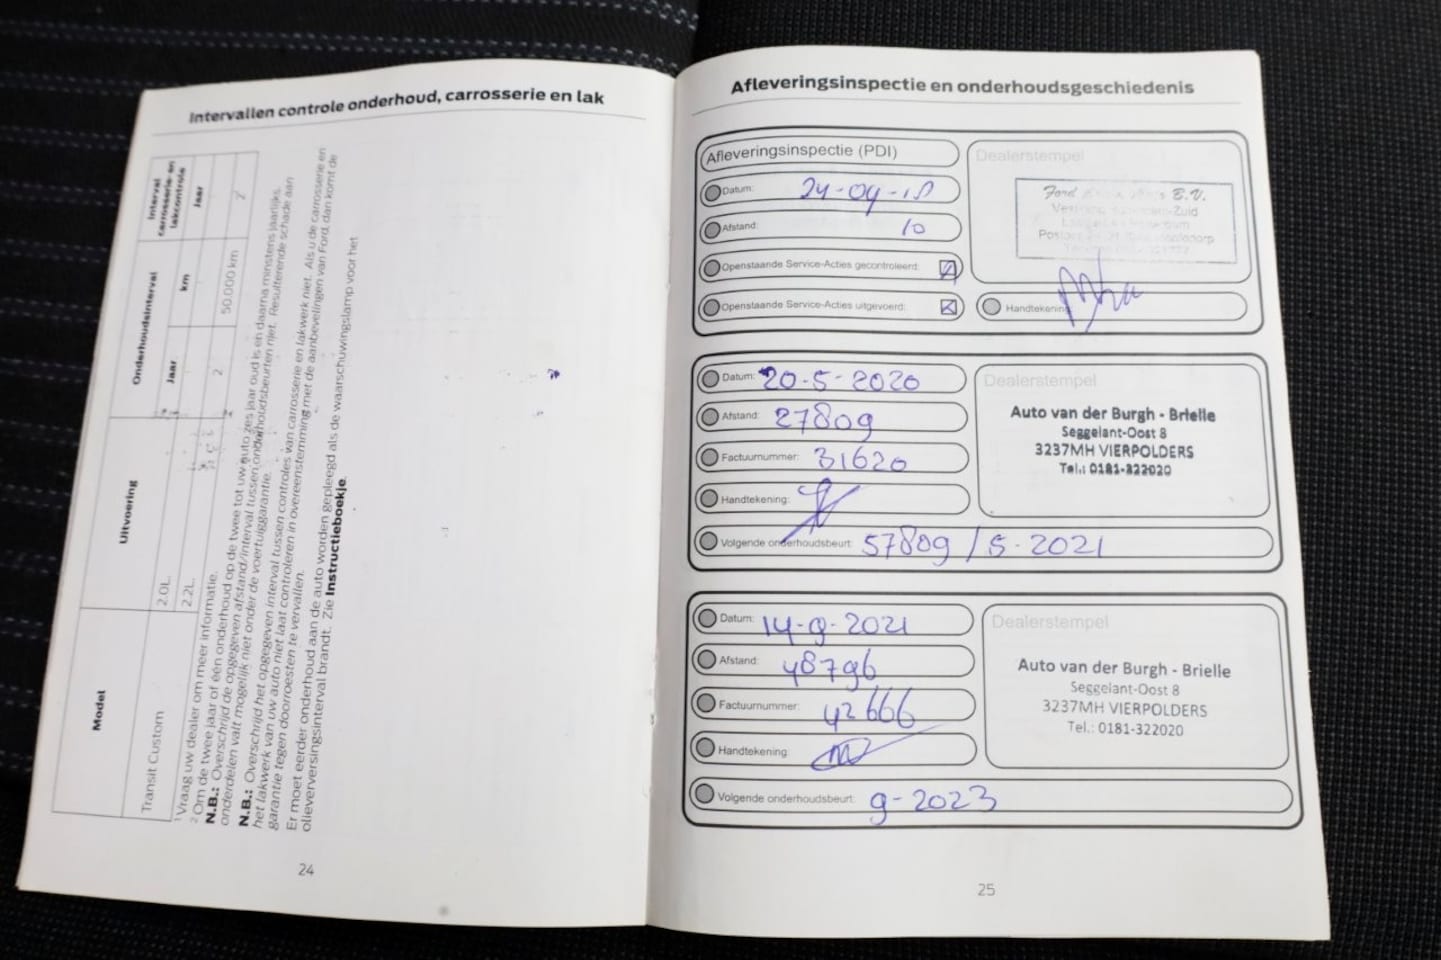 Intervallen controle onderhoud, carrosserie en lak
Model
Uitvoering
Onderhoudsinterval
Interval carrosserie- en lakcontrole
Jaar
km
Jaar
Transit Custom
2.0L.
2.2L.
2
50.000 km
2
1 Vraag uw dealer om meer informatie.
2 Om de twee jaar of één onderhoud op de twee tot uw auto zes jaar oud is en daarna minstens jaarlijks.
N.B.: Overschrijd de opgegeven afstand/interval tussen onderhoudsbeurten niet. Resulterende schade aan
onderdelen valt mogelijk niet onder de voertuiggarantie.
N.B.: Overschrijd het opgegeven interval tussen controles van carrosserie en lakwerk niet. Als u de carrosserie en
het lakwerk van uw auto niet laat controleren in overeenstemming met de aanbevelingen van Ford, dan komt de
garantie tegen doorroesten te vervallen.
Er moet eerder onderhoud aan de auto worden gepleegd als de waarschuwingslamp voor het
olieverversingsinterval brandt. Zie Instructieboekje.
24
Afleveringsinspectie en onderhoudsgeschiedenis
Afleveringsinspectie (PDI)
Datum: 24-04-18
Afstand: 10
Openstaande Service-Acties gecontroleerd:
Openstaande Service-Acties uitgevoerd:
Dealerstempel
Ford B.V.
Handtekening:
Datum: 20-5-2020
Afstand: 27809
Factuurnummer: 31620
Handtekening:
Volgende onderhoudsbeurt: 57809 / 5-2021
Dealerstempel
Auto van der Burgh - Brielle
Seggelant-Oost 8
3237MH VIERPOLDERS
Tel.: 0181-322020
Datum: 14-9-2021
Afstand: 48796
Factuurnummer: 42666
Handtekening:
Volgende onderhoudsbeurt: 9-2023
Dealerstempel
Auto van der Burgh - Brielle
Seggelant-Oost 8
3237MH VIERPOLDERS
Tel.: 0181-322020
25